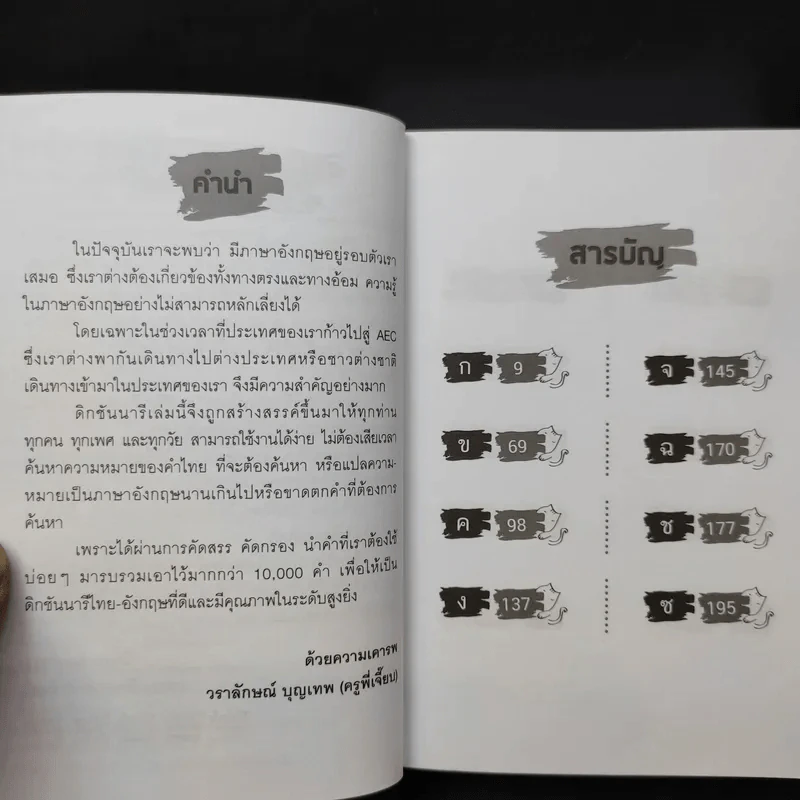 คำนำ
ในปัจจุบันเราจะพบว่า มีภาษาอังกฤษอยู่รอบตัวเรา
เสมอ ซึ่งเราต่างต้องเกี่ยวข้องทั้งทางตรงและทางอ้อม ความรู้
ในภาษาอังกฤษอย่างไม่สามารถหลักเลี่ยงได้
โดยเฉพาะในช่วงเวลาที่ประเทศของเราก้าวไปสู่ AEC
ซึ่งเราต่างพากันเดินทางไปต่างประเทศหรือชาวต่างชาติ
เดินทางเข้ามาในประเทศของเรา จึงมีความสำคัญอย่างมาก
ดิกชันนารีเล่มนี้จึงถูกสร้างสรรค์ขึ้นมาให้ทุกท่าน
ทุกคน ทุกเพศ และทุกวัย สามารถใช้งานได้ง่าย ไม่ต้องเสียเวลา
ค้นหาความหมายของคำไทย ที่จะต้องค้นหา หรือแปลความ-
หมายเป็นภาษาอังกฤษนานเกินไปหรือขาดตกคำที่ต้องการ
ค้นหา
เพราะได้ผ่านการคัดสรร คัดกรอง นำคำที่เราต้องใช้
บ่อยๆ มารบรวมเอาไว้มากกว่า 10,000 คำ เพื่อให้เป็น
ดิกชันนารีไทย-อังกฤษที่ดีและมีคุณภาพในระดับสูงยิ่ง
ด้วยความเคารพ
วราลักษณ์ บุญเทพ (ครูพี่เจี๊ยบ)
สารบัญ
ก 9
ข 69
ค 98
ง 137
จ 145
ฉ 170
ช 177
ซ 195